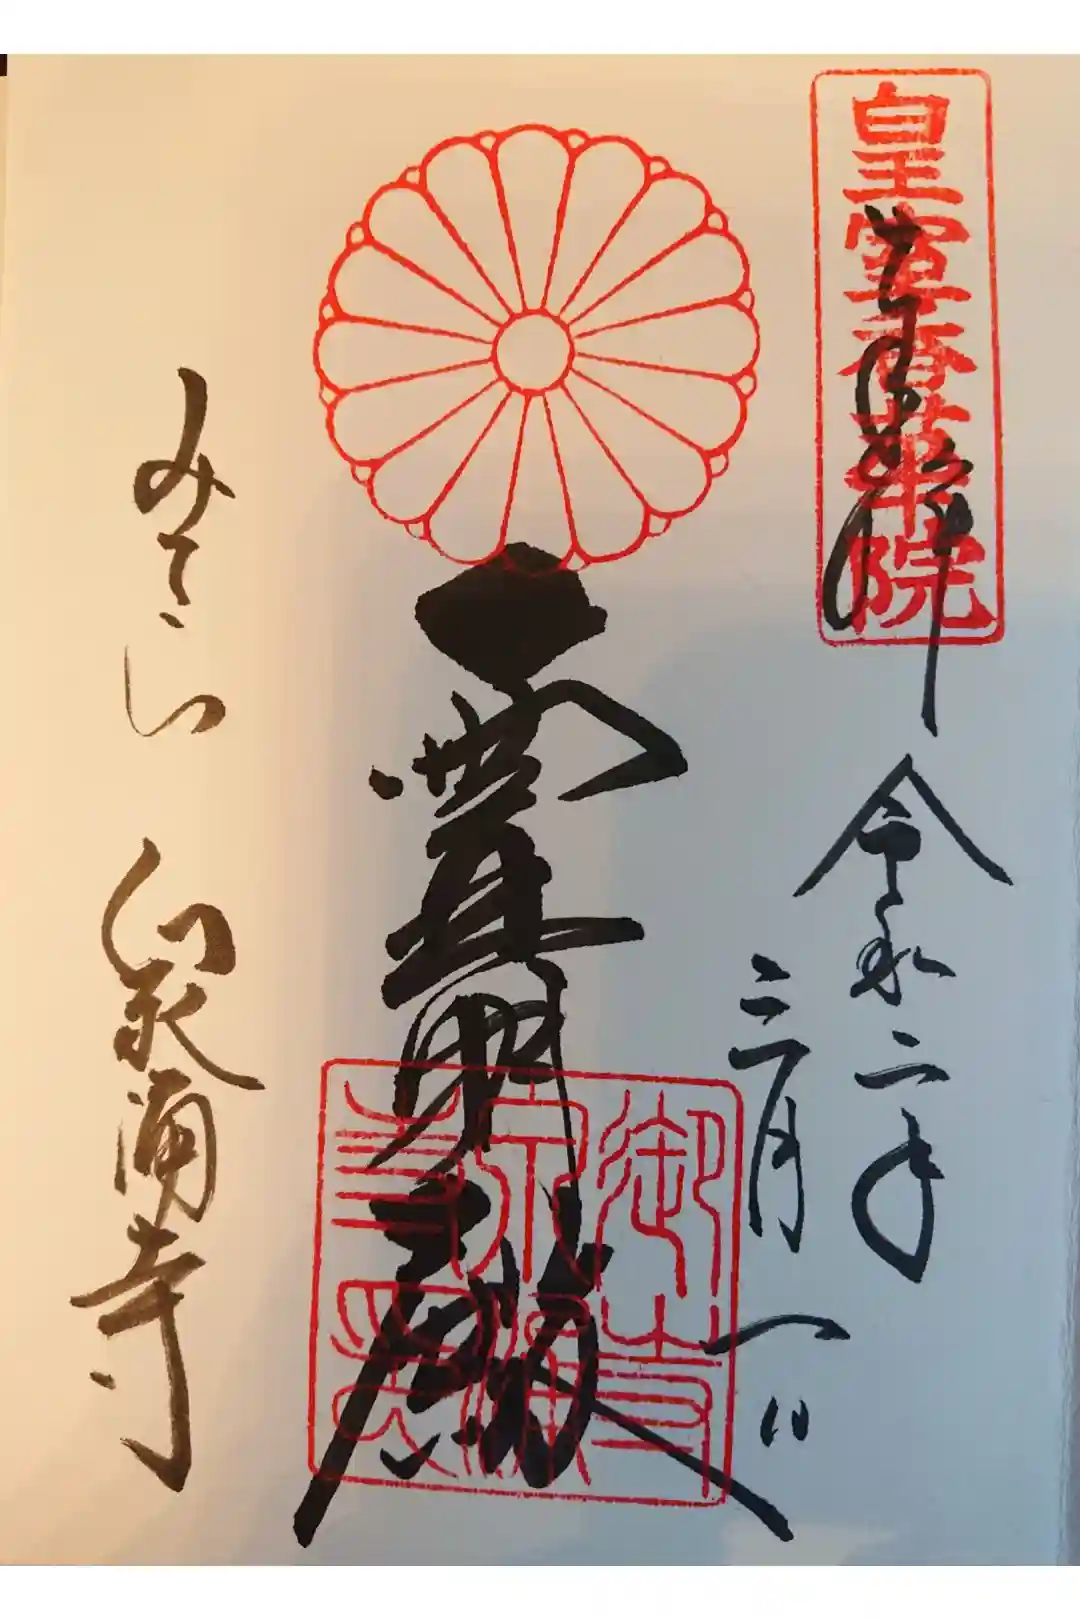 皇室香華院
奉拝
令和二年
三月一日
霊明殿
御寺泉涌寺
みてら 泉涌寺